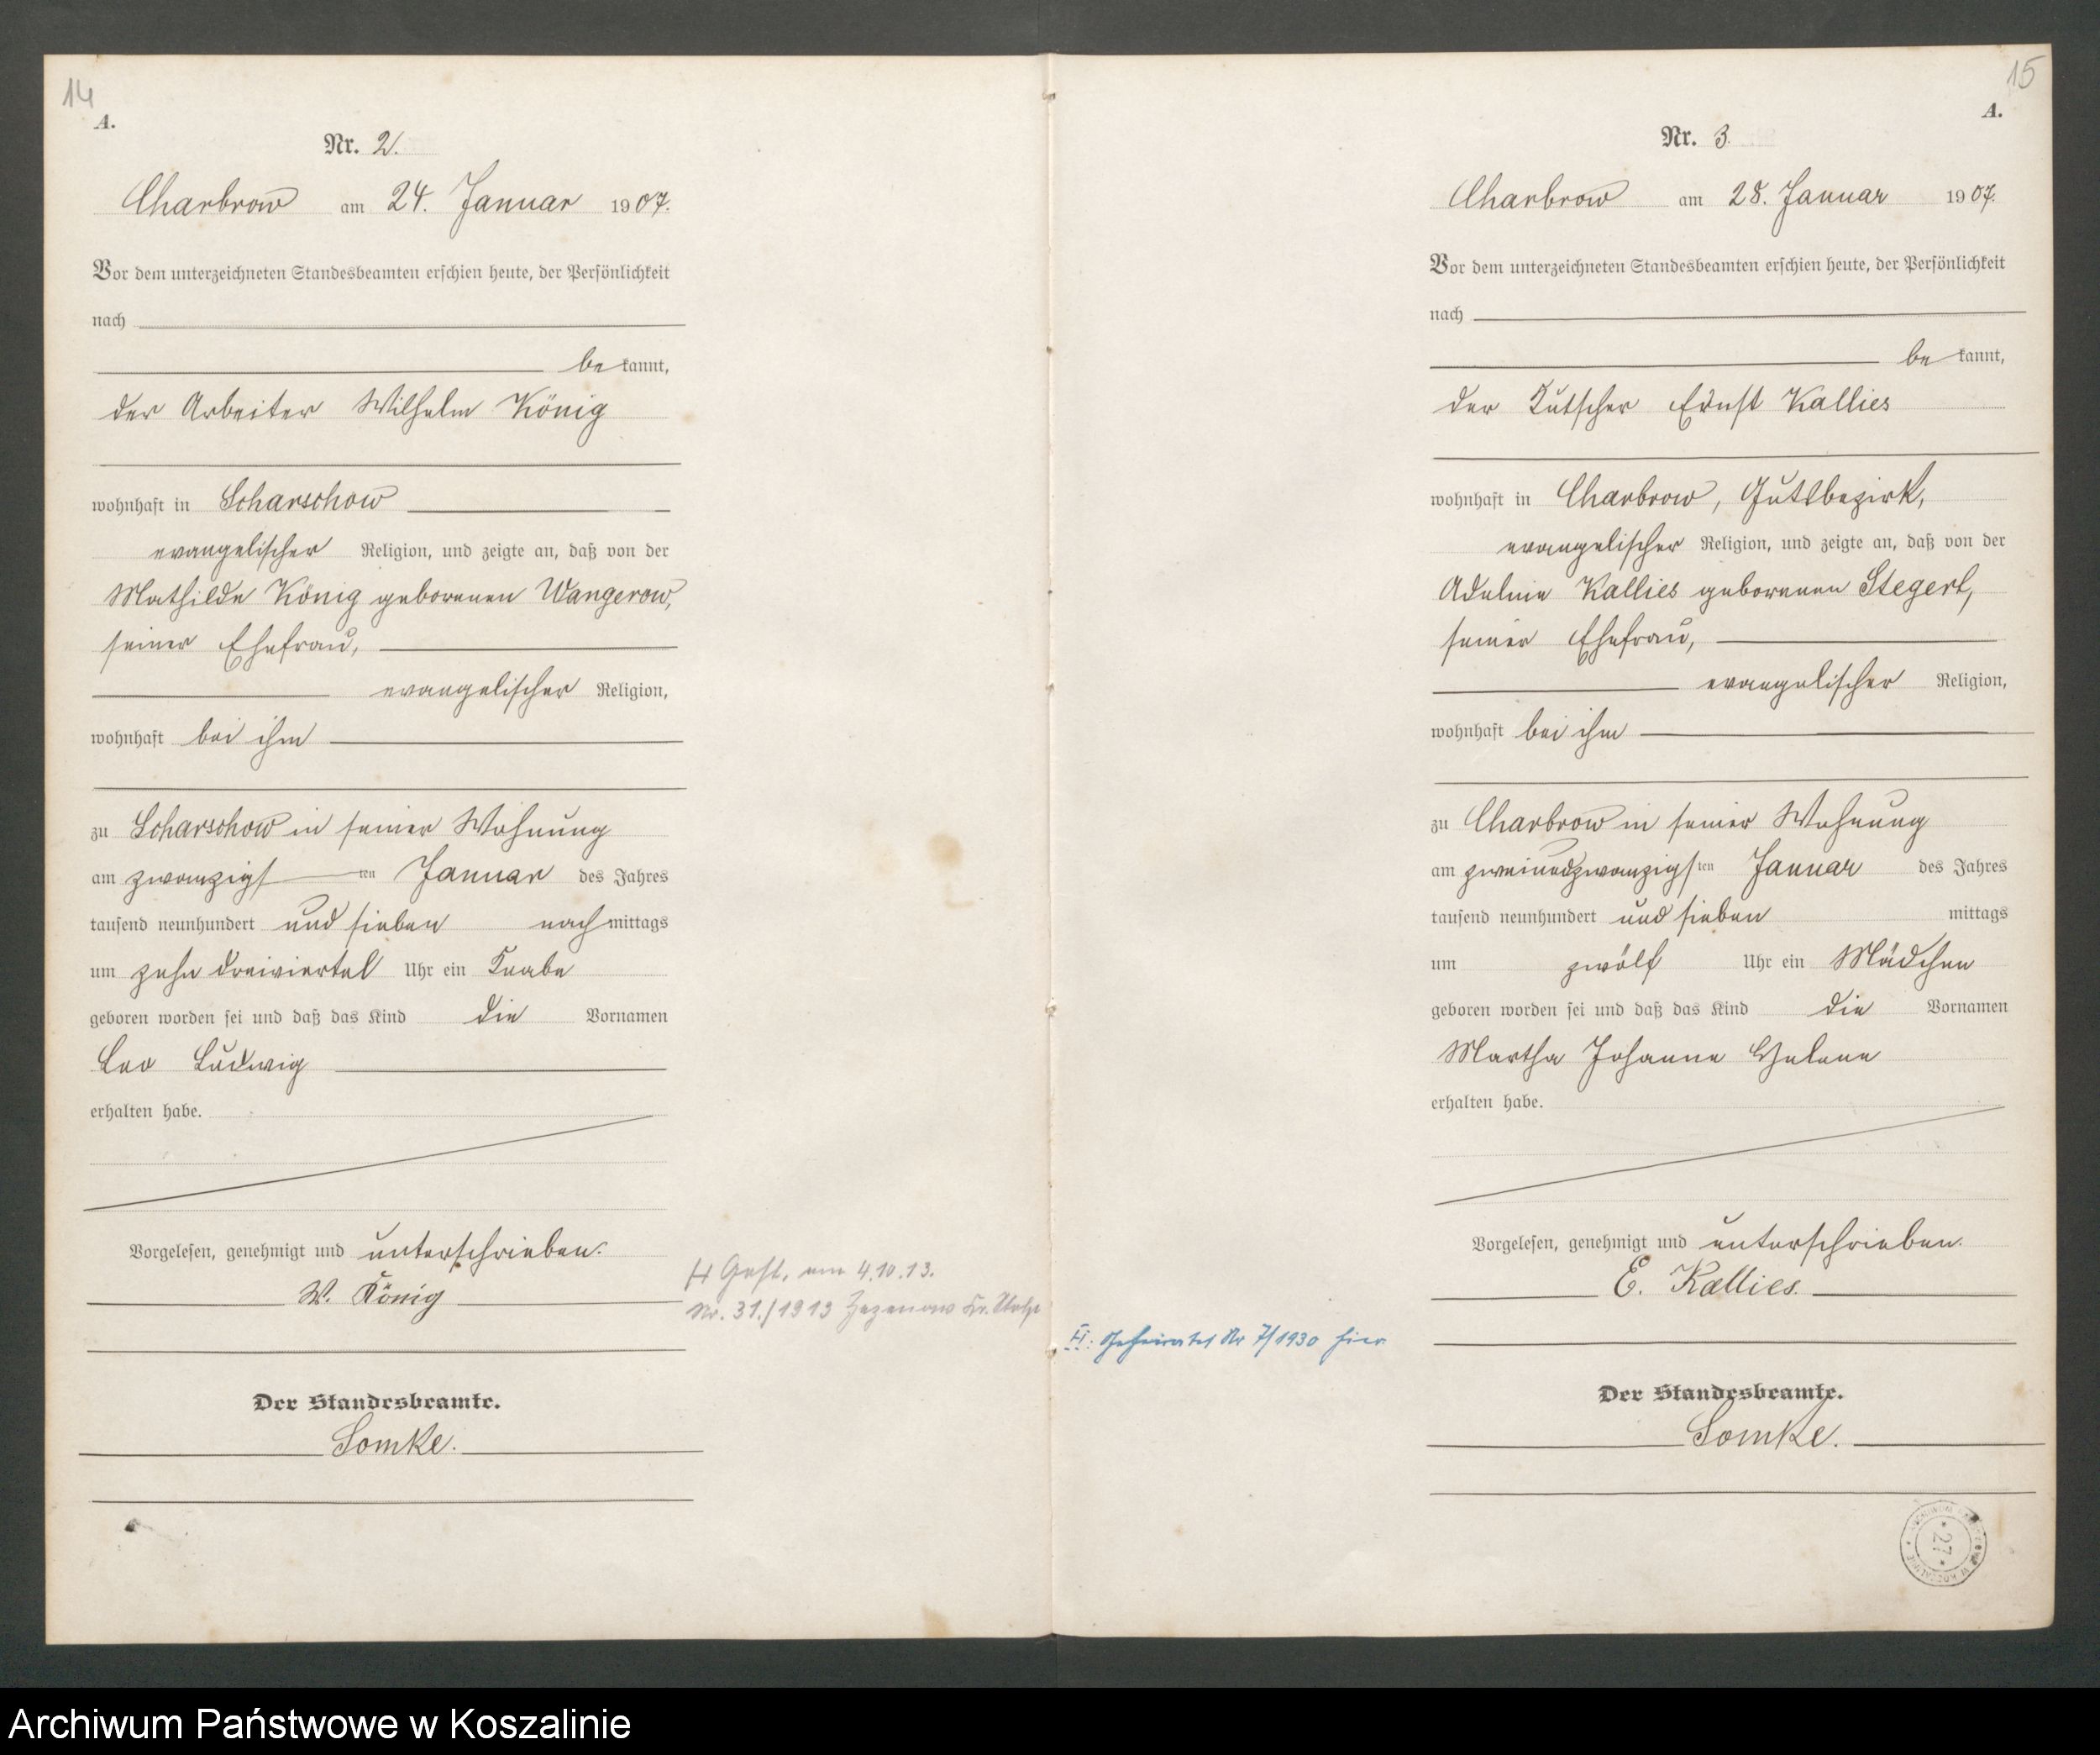 14
A.
Nr. 2.
Charbrow am 24. Januar 1907.
Vor dem unterzeichneten Standesbeamten erschien heute, der Persönlichkeit
nach
be kannt,
der Arbeiter Wilhelm König
wohnhaft in Scharschow
evangelischer Religion, und zeigte an, daß von der
Mathilde König geborenen Wangerow,
seiner Ehefrau,
evangelischer Religion,
wohnhaft bei ihm
zu Scharschow in seiner Wohnung
am zwanzigsten Januar des Jahres
tausend neunhundert und sieben nachmittags
um zehn dreiviertel Uhr ein Knabe
geboren worden sei und daß das Kind die Vornamen
Leo Ludwig
erhalten habe.
Vorgelesen, genehmigt und unterschrieben.
W. König
Der Standesbeamte.
Somke.
Gest. am 4.10.13.
Nr. 31./1913 Zezenow Kr. Stolp
15
A.
Nr. 3.
Charbrow am 28. Januar 1907.
Vor dem unterzeichneten Standesbeamten erschien heute, der Persönlichkeit
nach
be kannt,
der Kutscher Ernst Kallies
wohnhaft in Charbrow, Gutsbezirk,
evangelischer Religion, und zeigte an, daß von der
Adeline Kallies geborenen Stegert,
seiner Ehefrau,
evangelischer Religion,
wohnhaft bei ihm
zu Charbrow in seiner Wohnung
am zweiundzwanzigsten Januar des Jahres
tausend neunhundert und sieben mittags
um zwölf Uhr ein Mädchen
geboren worden sei und daß das Kind die Vornamen
Martha Johanne Helene
erhalten habe.
Vorgelesen, genehmigt und unterschrieben.
E. Kallies.
H: Geheiratet Nr 7/1930 hier.
Der Standesbeamte.
Somke.
27
Archiwum Państwowe w Koszalinie